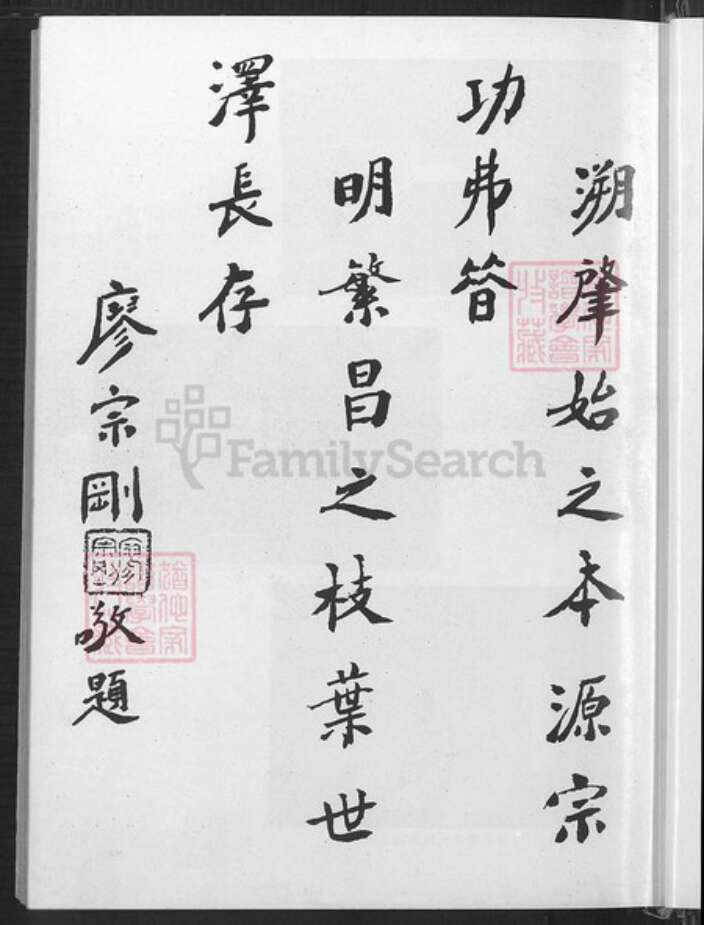 溯肇始之本源宗
功弗簪
明繁昌之枝葉世
澤長存
廖宗剛敬題
FamilySearch